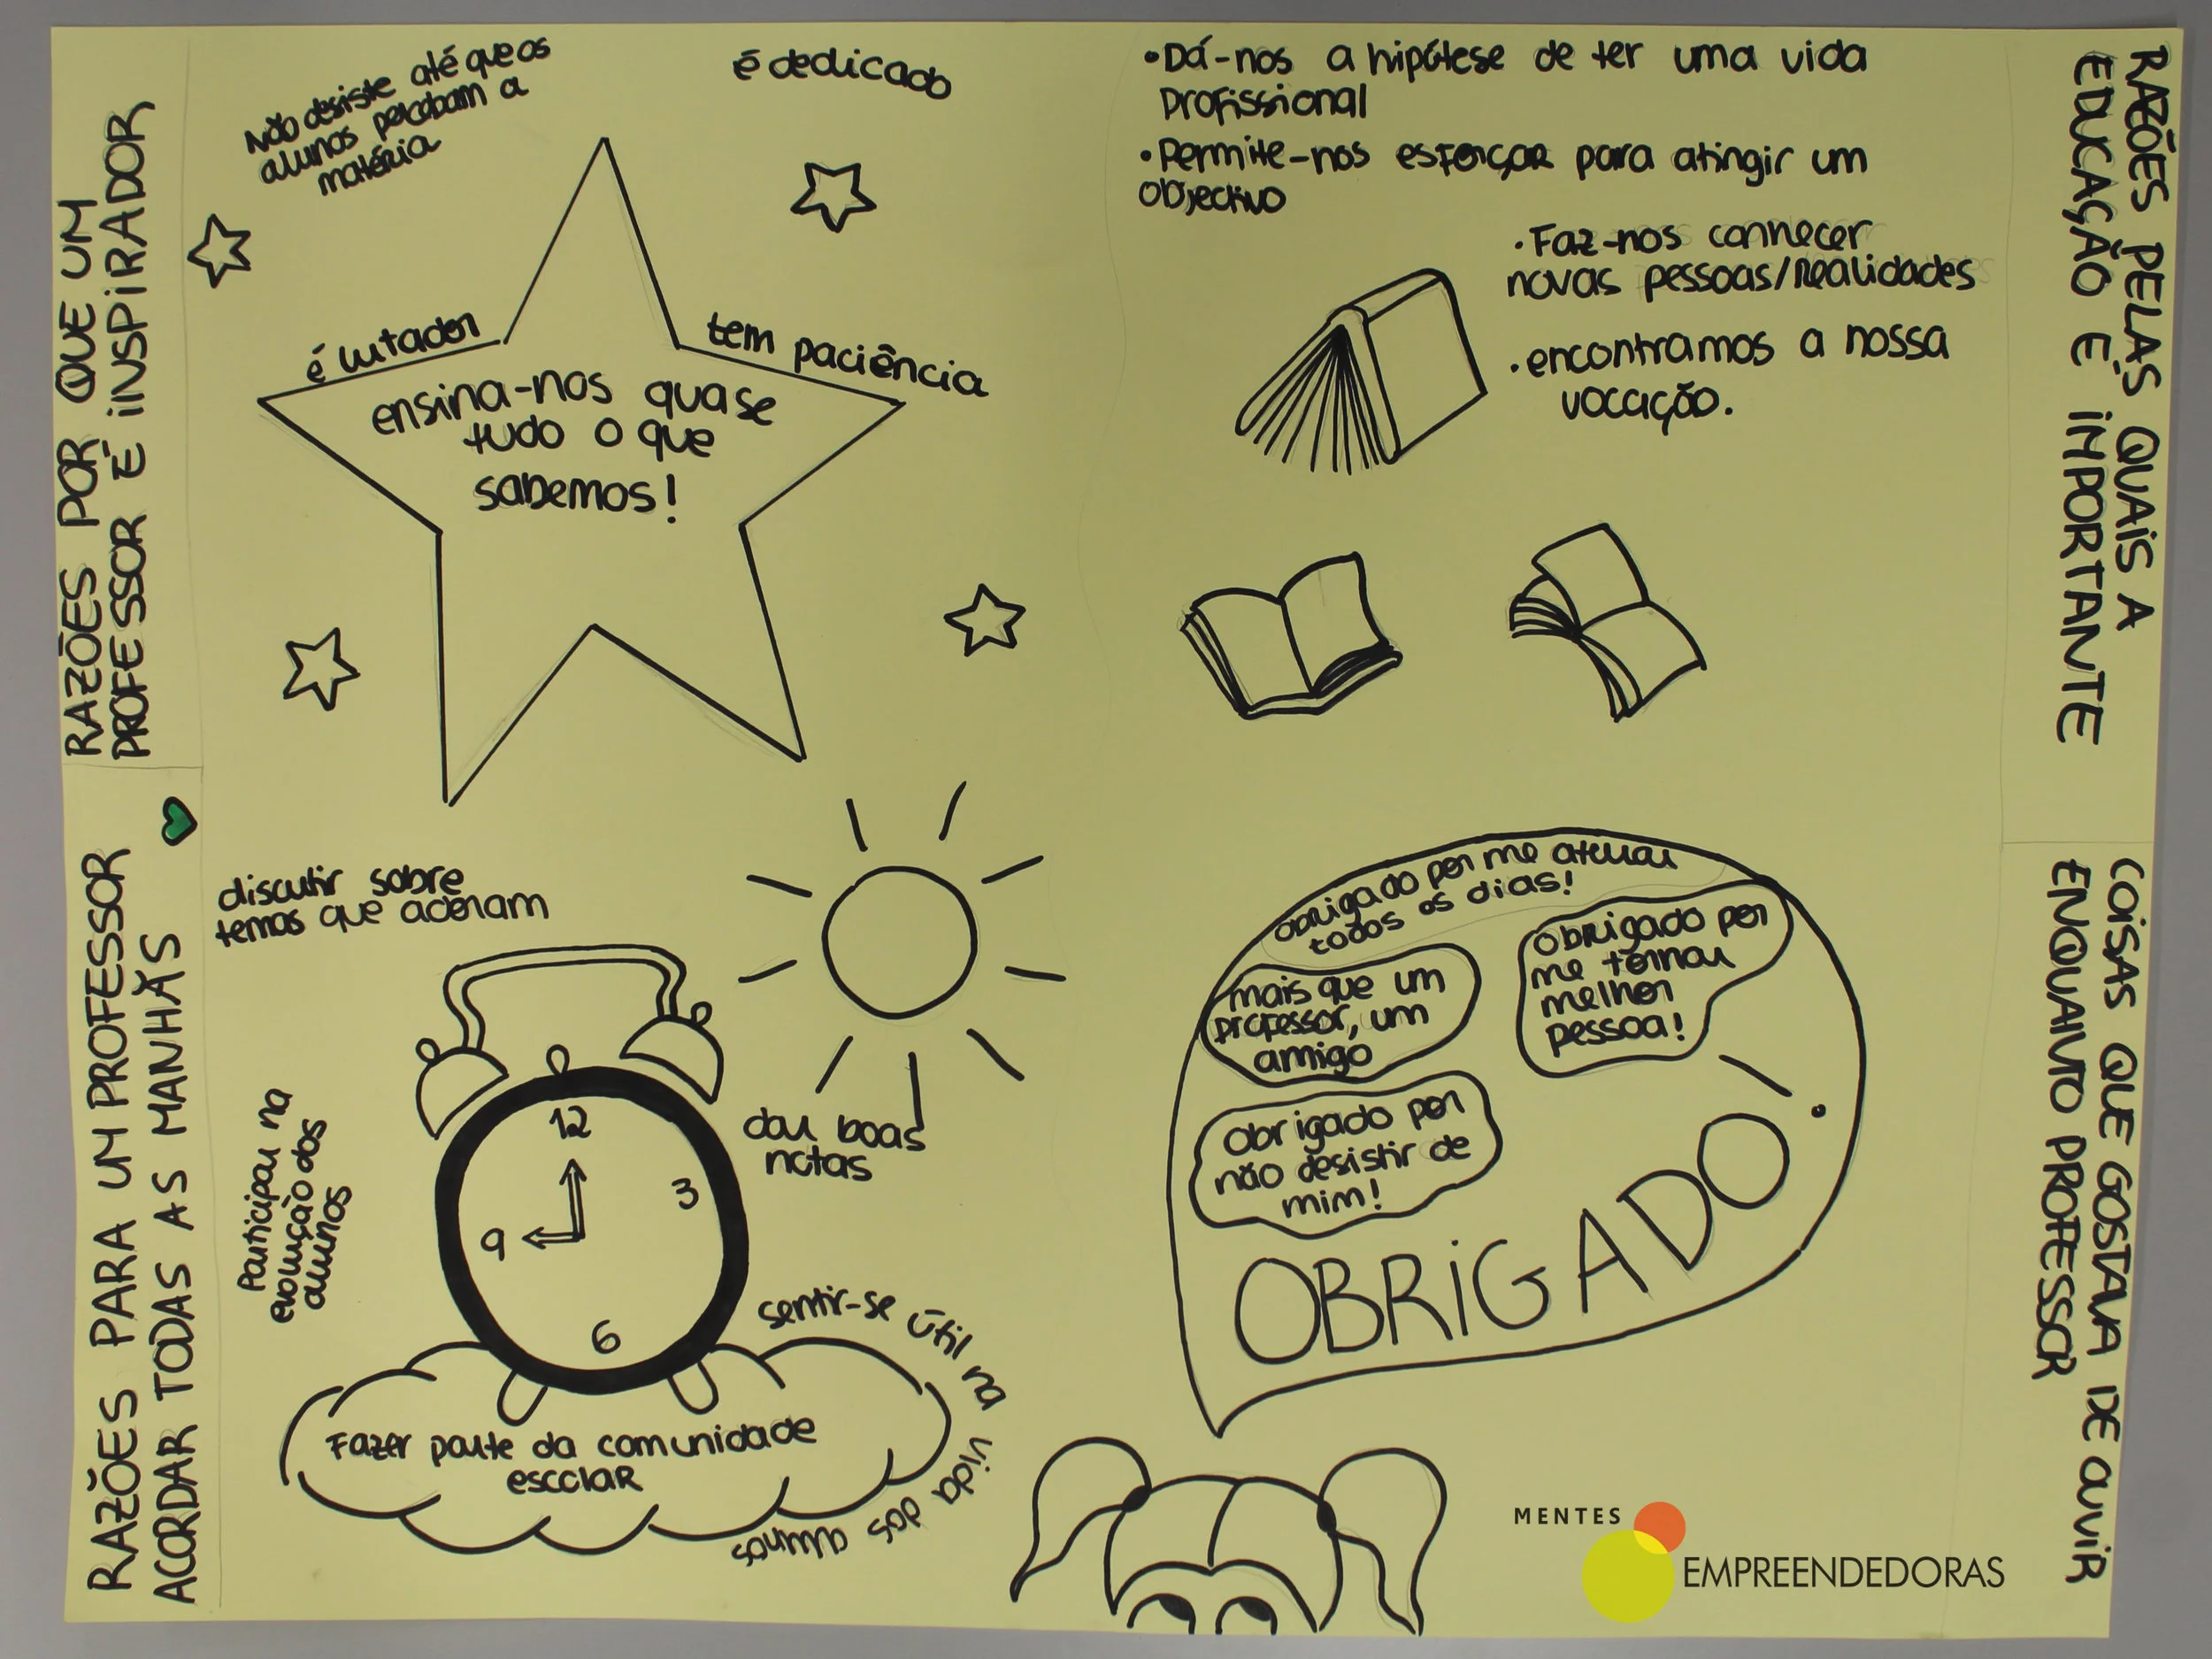 RAZÕES POR QUE UM
PROFESSOR É INSPIRADOR
Não desiste até que os
alunos percebam a
matéria
é dedicado
é lutador
tem paciência
ensina-nos quase
tudo o que
sabemos!
RAZÕES PELAS QUAIS A
EDUCAÇÃO É IMPORTANTE
•Dá-nos a hipótese de ter uma vida
profissional
•Permite-nos esforçar para atingir um
objectivo
•Faz-nos conhecer
novas pessoas/realidades
•encontramos a nossa
vocação.
RAZÕES PARA UM PROFESSOR
ACORDAR TODAS AS MANHÃS
discutir sobre
temas que adoram
Participar na
evolução dos
alunos
12
3
6
9
dar boas
notas
sentir-se útil na vida dos alunos
Fazer parte da comunidade
escolar
COISAS QUE GOSTAVA DE OUVIR
ENQUANTO PROFESSOR
Obrigado por me aturar
todos os dias!
Obrigado por
me tornar
melhor
pessoa!
mais que um
professor, um
amigo
Obrigado por
não desistir de
mim!
OBRIGADO!
MENTES
EMPREENDEDORAS